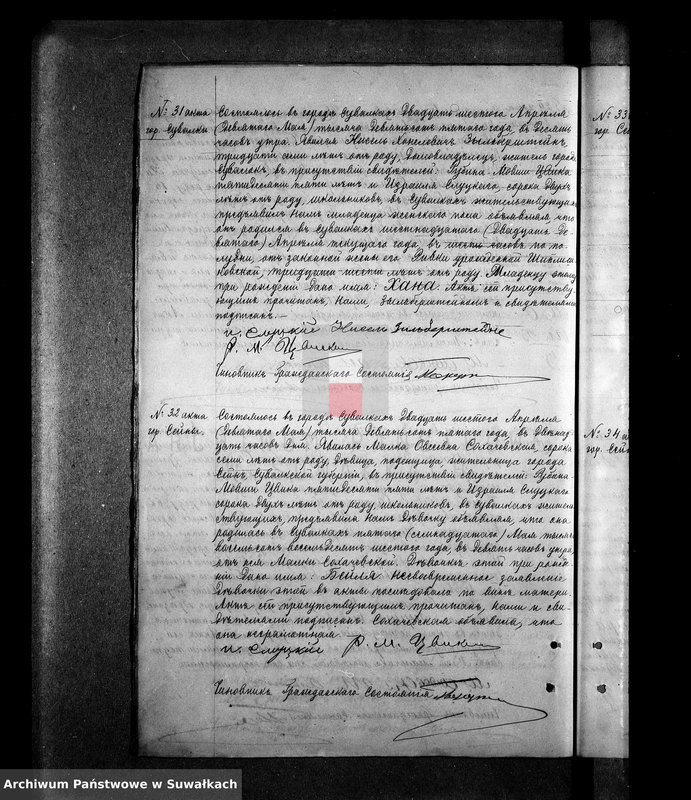 № 31 акта
гор. Сувалки
Состоялось въ городѣ Сувалкахъ двадцать шестого Апрѣля
(девятаго Мая) тысяча девятьсотъ пятаго года, въ десять
часовъ утра. Явился Нисель Хонелевичъ Зильберштейнъ,
тридцати семи лѣтъ отъ роду, домовладѣлецъ, житель города
Сувалокъ, въ присутствіи свидѣтелей: Рубина-Мовши Цвика
пятидесяти пяти лѣтъ и Израиля Слуцкаго, сорока двухъ
лѣтъ отъ роду, школьниковъ, въ Сувалкахъ жительствующихъ
предъявилъ намъ младенца женскаго пола объявляя, что
онъ родился въ Сувалкахъ шестнадцатаго (двадцать де-
вятаго) Апрѣля текущаго года, въ шесть часовъ по по-
лудни, отъ законной жены его Ривки урожденной
ковской, тридцати шести лѣтъ отъ роду. Младенцу этому
при рожденіи дано имя: Хана. Актъ сей присутству-
ющимъ прочитанъ, нами, Зильберштейномъ и свидѣтелями
подписанъ. —
И. Слуцкій Нисель Зильберштейнъ
Р. М. Цвикъ
Чиновникъ Гражданскаго Состоянія
№ 32 акта
гор. Сейны
Состоялось въ городѣ Сувалкахъ двадцать шестого Апрѣля
(девятаго Мая) тысяча девятьсотъ пятаго года, въ двѣнад-
цать часовъ дня. Явилась Малка Овсеевна Сохачевская, сорока
семи лѣтъ отъ роду, дѣвица, поденщица, жительница города
Сейнъ, Сувалкской губерніи, въ присутствіи свидѣтелей: Рубина-
Мовши Цвика пятидесяти пяти лѣтъ и Израиля Слуцкаго
сорока двухъ лѣтъ отъ роду, школьниковъ, въ Сувалкахъ житель-
ствующихъ, предъявила намъ дѣвочку объявляя, что она
родилась въ Сувалкахъ пятаго (семнадцатаго) Мая тысяча
восемьсотъ восемьдесятъ шестого года, въ девять часовъ утра,
отъ нея Малки Сохачевской. Дѣвочкѣ этой при рожде-
ніи дано имя: Бейля. Несвоевременное заявленіе
дѣвочки этой въ акты послѣдовало по винѣ матери.
Актъ сей присутствующимъ прочитанъ, нами и сви-
дѣтелями подписанъ. Сохачевская объявила, что
она неграмотная.
И. Слуцкій Р. М. Цвикъ
Чиновникъ Гражданскаго Состоянія
№ 33
гор. Се
№ 34 а
гор. Сей
Archiwum Państwowe w Suwałkach